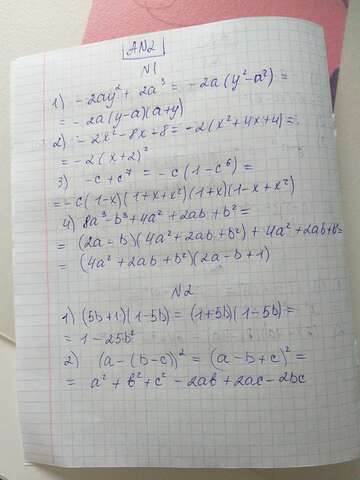 АЛ2
N1
1) -2ay² + 2a³ = -2a(y²-a²) =
= -2a(y-a)(a+y)
2) -2x²-8x-8 = -2(x²+4x+4) =
= -2(x+2)²
3) -c+c⁷ = -c(1-c⁶) =
= -c(1-x)(1+x+x²)(1+x)(1-x+x²)
4) 8a³-b³+4a²+2ab+b² =
= (2a-b)(4a²+2ab+b²)+4a²+2ab+b²=
= (4a²+2ab+b²)(2a-b+1)
N2
1) (5b+1)(1-5b) = (1+5b)(1-5b) =
= 1-25b²
2) (a-(b-c))² = (a-b+c)² =
= a²+b²+c²-2ab+2ac-2bc